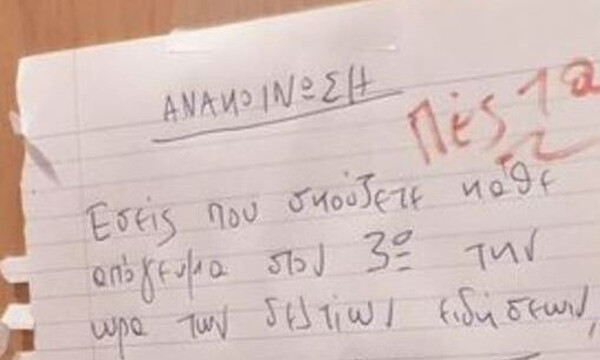 ΑΝΑΚΟΙΝΩΣΗ
Πές τα
Εσείς που σκούζετε κάθε
απόγευμα στον 3º την
ωρα των δελτίων ειδήσεων,